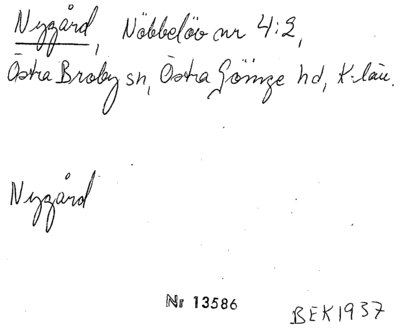 Nygård, Nöbbelöv nr 4:2,
Östra Broby sn, Östra Göinge hd, K-län.
Nygård
Nr 13586
BEK1937